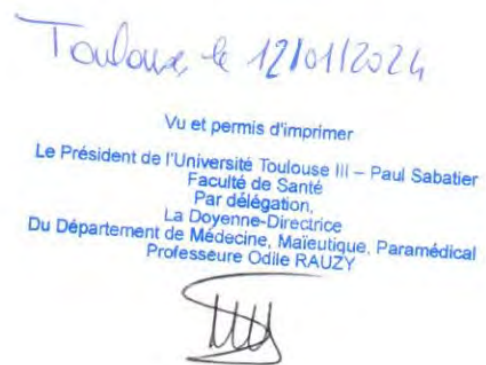 Toulouse le 12/01/2024
Vu et permis d'imprimer
Le Président de l'Université Toulouse III – Paul Sabatier
Faculté de Santé
Par délégation,
La Doyenne-Directrice
Du Département de Médecine, Maïeutique, Paramédical
Professeure Odile RAUZY